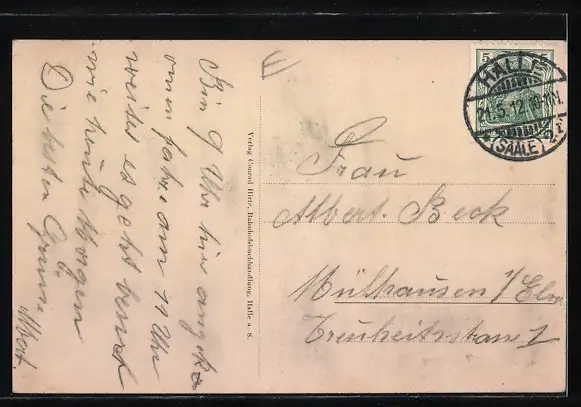 Bin 9 Uhr hier angek.
omm. fahre um 11 Uhr
weiter es geht
wie heute Morgen
Die besten Grüsse
Albert.
Verlag Conrad Hietz, Bahnhofsbuchhandlung, Halle a. S.
5
5
HALLE
21.5.12.
(SAALE)
Frau
Albert. Beck
Mülhausen i/Els.
Freiheitstrasse 1